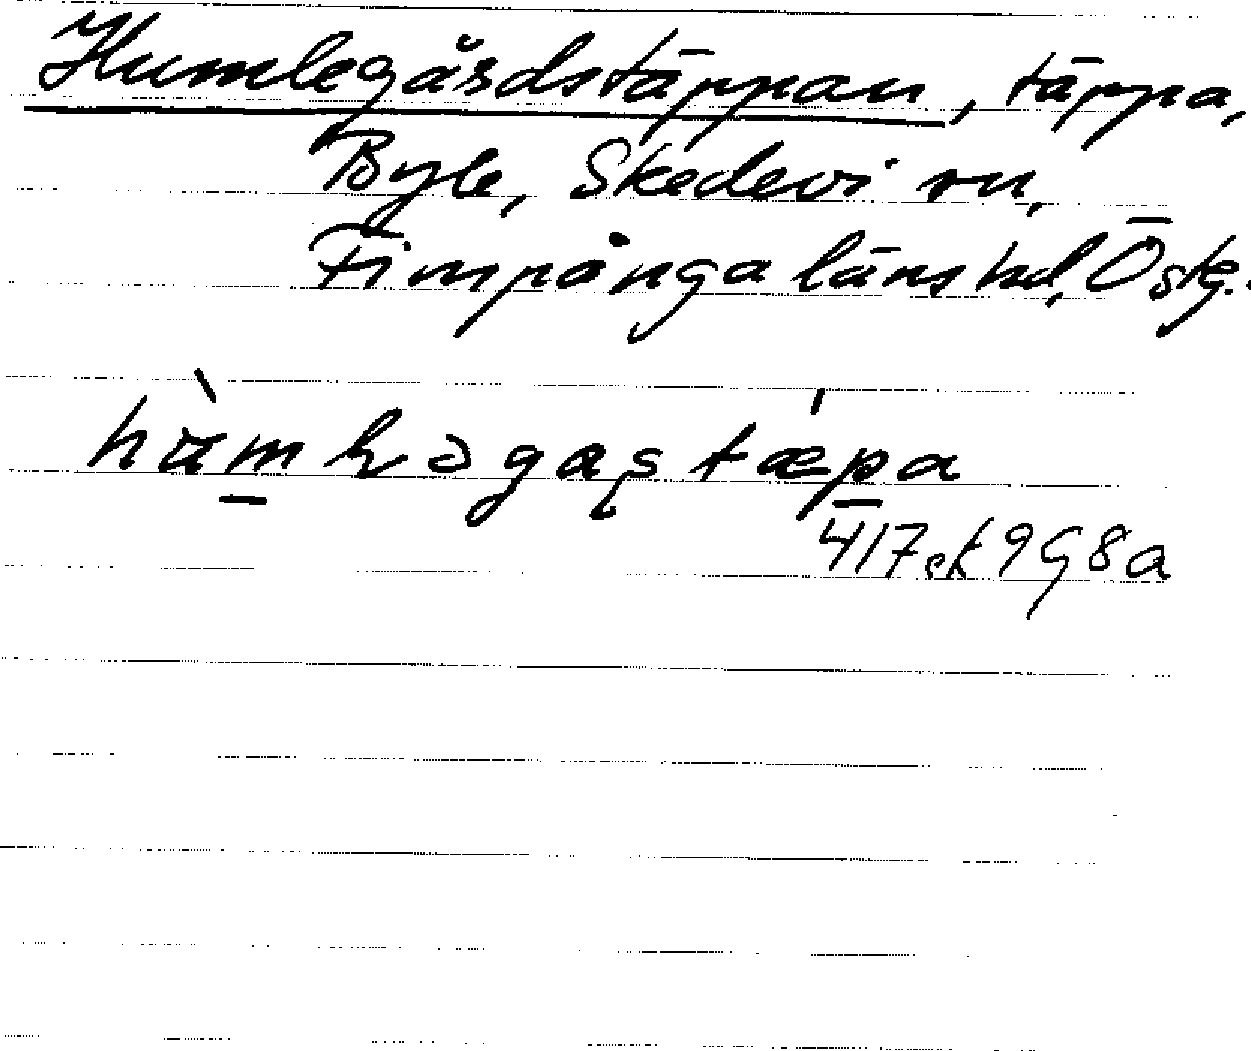 Humlegårdstäppan, täppa,
Byle, Skedevi sn,
Finspånga läns hd, Östg.
417 ek 9G8a